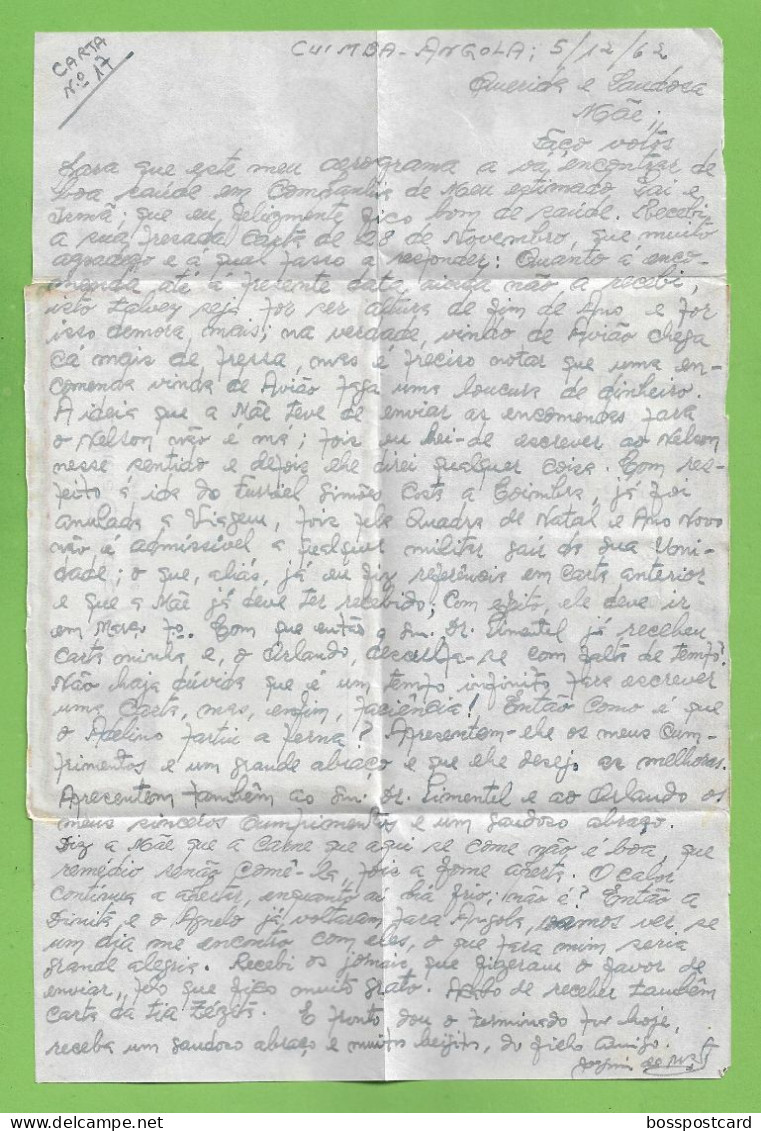 CARTA
N.º 17
CUIMBA - ANGOLA; 5/12/62
Querida e Saudosa
Mãe,,
Faço votos
Para que este meu aerograma a vá encontrar de
boa saúde em Companhia de Meu estimado Pai e
Irmã; que eu, felizmente fico bom de saúde. Recebi
a sua prezada Carta de 28 de Novembro, que muito
agradeço e à qual passo a responder: Quanto à enco-
menda até à presente data, ainda não a recebi,
isto talvez seja por ser altura de fim de Ano e por
isso demora mais; na verdade, vindo de Avião chega
cá mais de pressa, mas é preciso notar que uma en-
comenda vinda de Avião paga uma loucura de dinheiro.
A ideia que a Mãe teve de enviar as encomendas para
o Nelson não é má; pois eu hei-de escrever ao Nelson
nesse sentido e depois lhe direi qualquer coisa. Com res-
peito à ida do Furriel Simões Costa a Coimbra, já foi
anulada a Viagem, pois pela Quadra de Natal e Ano Novo
não é admissível a qualquer militar sair da sua Uni-
dade; o que, aliás, já eu fiz referência em Carta anterior
e que a Mãe já deve ter recebido; Com efeito, ele deve ir
em Março pº. Com que então o Snr. Dr. Pimentel já recebeu
Carta minha e, o Orlando, desculpa-se com falta de tempo?
Não haja dúvida que é um tempo infinito para escrever
uma Carta, mas, enfim, paciência! Então Como é que
o Adelino partiu a perna? Apresentem-lhe os meus Cum-
primentos e um grande abraço e que lhe desejo as melhoras.
Apresentem também ao Snr. Dr. Pimentel e ao Orlando os
meus sinceros Cumprimentos e um saudoso abraço.
Diz a Mãe que a Carne que aqui se come não é boa, que
remédio senão comê-la, pois a fome aperta. O calor
continua a apertar, enquanto aí há frio; não é? Então a
Dinita e o Agnelo já voltaram para Angola, vamos ver se
um dia me encontro com eles, o que para mim seria
grande alegria. Recebi os jornais que fizeram o favor de
enviar, pelo que fico muito grato. Acabo de receber também
Carta da tia Zézita. E pronto dou o terminado por hoje,
receba um saudoso abraço e muitos beijitos, do filho amigo.